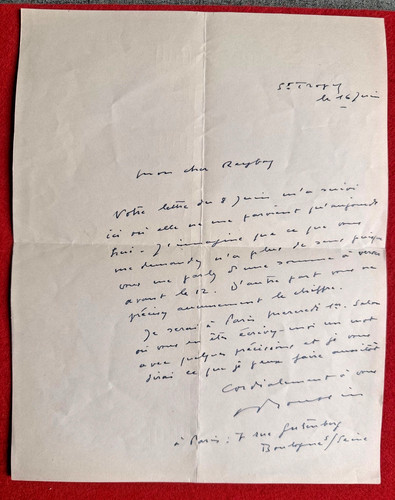 St Tropez
le 16 Juin
mon cher
Votre lettre du 8 Juin m'a suivi
ici où elle ne me parvient qu'aujourd
hui. J'imagine que ce que vous
me demandez n'a plus de sens puisque
vous me parlez d'une somme à
avant le 12. D'autre part vous ne
précisez aucunement le chiffre.
Je serai à Paris mercredi 19. Selon
où vous en êtes écrivez-moi un mot
avec quelques précisions et je vous
dirai ce que je peux faire aussitôt
Cordialement à vous
à Paris : 7 rue Gutenberg
Boulogne s/Seine